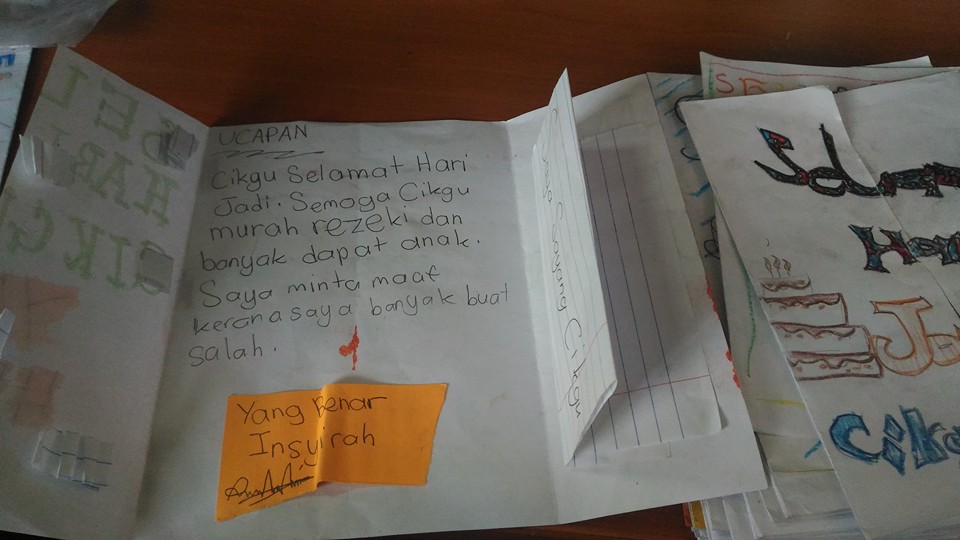 UCAPAN
Cikgu Selamat Hari
Jadi. Semoga Cikgu
murah rezeki dan
banyak dapat anak.
Saya minta maaf
kerana saya banyak buat
salah.
Yang Benar
Insyirah
Sayang Cikgu
Ha
Cik